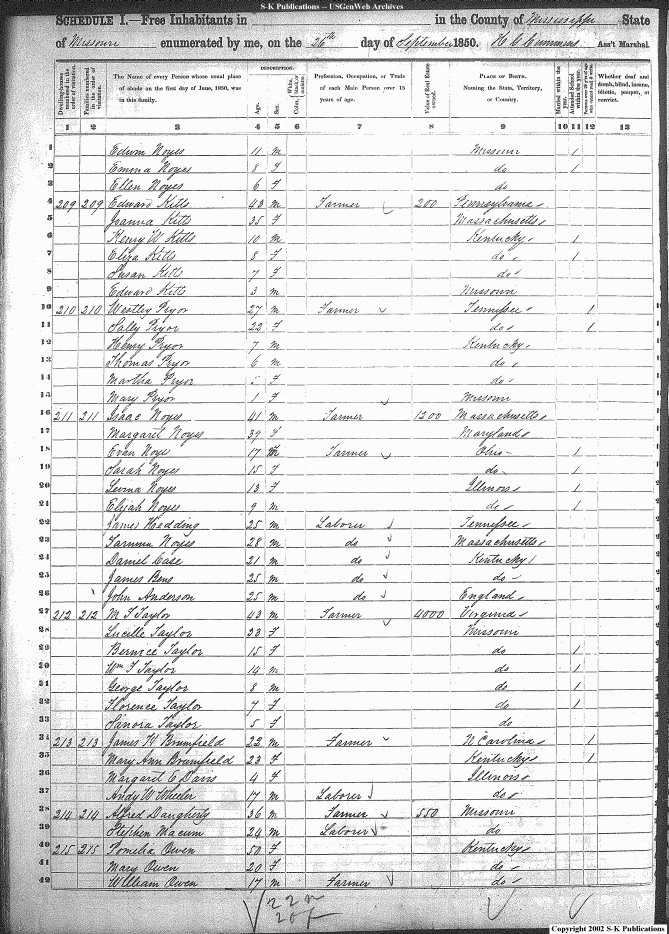 S-K Publications -- USGenWeb Archives
SCHEDULE I.—Free Inhabitants in in the County of Mississippi State
of Missouri enumerated by me, on the 26th day of September 1850. H C Cummins Ass't Marshal.
Dwelling-houses numbered in the order of visitation. Families numbered in the order of visitation. The Name of every Person whose usual place of abode on the first day of June, 1850, was in this family. DESCRIPTION. Age. Sex. Color, White, black, or mulatto. Profession, Occupation, or Trade of each Male Person over 15 years of age. Value of Real Estate owned. PLACE OF BIRTH. Naming the State, Territory, or Country. Married within the year. Attended School within the year. Persons over 20 y'rs of age who cannot read & write. Whether deaf and dumb, blind, insane, idiotic, pauper, or convict.
1 2 3 4 5 6 7 8 9 10 11 12 13
1 Edwin Noyes 11 m Missouri 1
2 Emma Noyes 8 F do 1
3 Ellen Noyes 6 F do
4 209 209 Edward Kitts 43 m Farmer 200 Pennsylvania
5 Joanna Kitts 35 F Massachusetts
6 Henry W Kitts 10 m Kentucky 1
7 Eliza Kitts 8 F do 1
8 Susan Kitts 7 F do
9 Edward Kitts 3 m Missouri
10 210 210 Westley Pryor 27 m Farmer Tennessee 1
11 Sally Pryor 22 F do 1
12 Henry Pryor 7 m Kentucky
13 Thomas Pryor 6 m do
14 Martha Pryor F do
15 Mary Pryor 1 F Missouri
16 211 211 Isaac Noyes 41 m Farmer 1200 Massachusetts
17 Margaret Noyes 39 F Maryland
18 Evan Noyes 17 m Farmer Ohio 1
19 Sarah Noyes 15 F do 1
20 Noyes 13 F Illinois 1
21 Elijah Noyes 9 m do 1
22 James Hedding 25 m Laborer Tennessee
23 Noyes 28 m do Massachusetts
24 Daniel Case 21 m do Kentucky
25 James Bens 25 m do do
26 John Anderson 25 m do England
27 212 212 M F Taylor 43 m Farmer 4000 Virginia
28 Lucille Taylor 33 F Missouri
29 Bernice Taylor 15 F do 1
30 Wm F Taylor 14 m do 1
31 George Taylor 8 m do 1
32 Florence Taylor 7 F do 1
33 Sinora Taylor 5 F do
34 213 213 James H Brumfield 22 m Farmer N Carolina 1
35 Mary Ann Brumfield 23 F Kentucky 1
36 Margaret E Davis 4 F Illinois
37 Andy W Wheeler 17 m Laborer do
38 214 214 Alfred Daugherty 36 m Farmer 550 Missouri
39 Stephen Macum 24 m Laborer do
40 215 215 Pomelia Owen 50 F Kentucky
41 Mary Owen 20 F do
42 William Owen 17 m Farmer do
22 m
20 f
Copyright 2002 S-K Publications